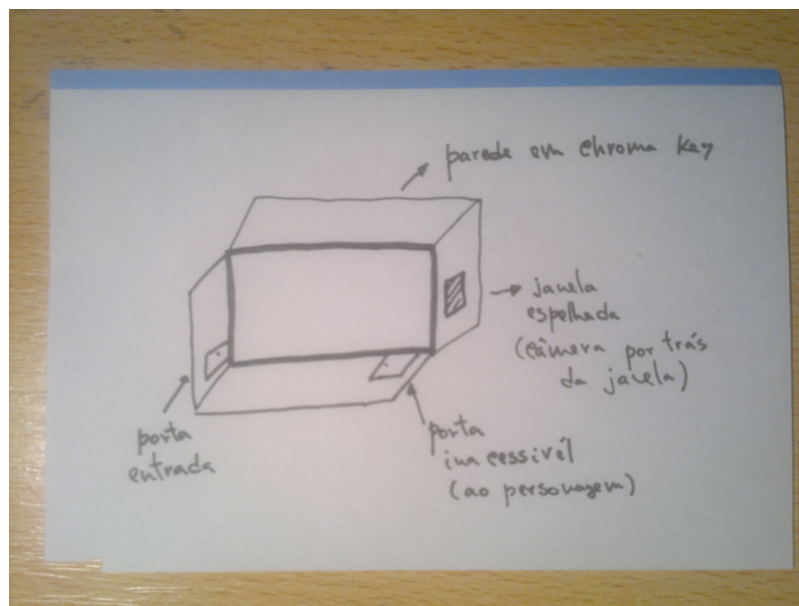 parede em chroma key
janela
espelhada
(câmera por trás
da janela)
porta
entrada
porta
inacessível
(ao personagem)